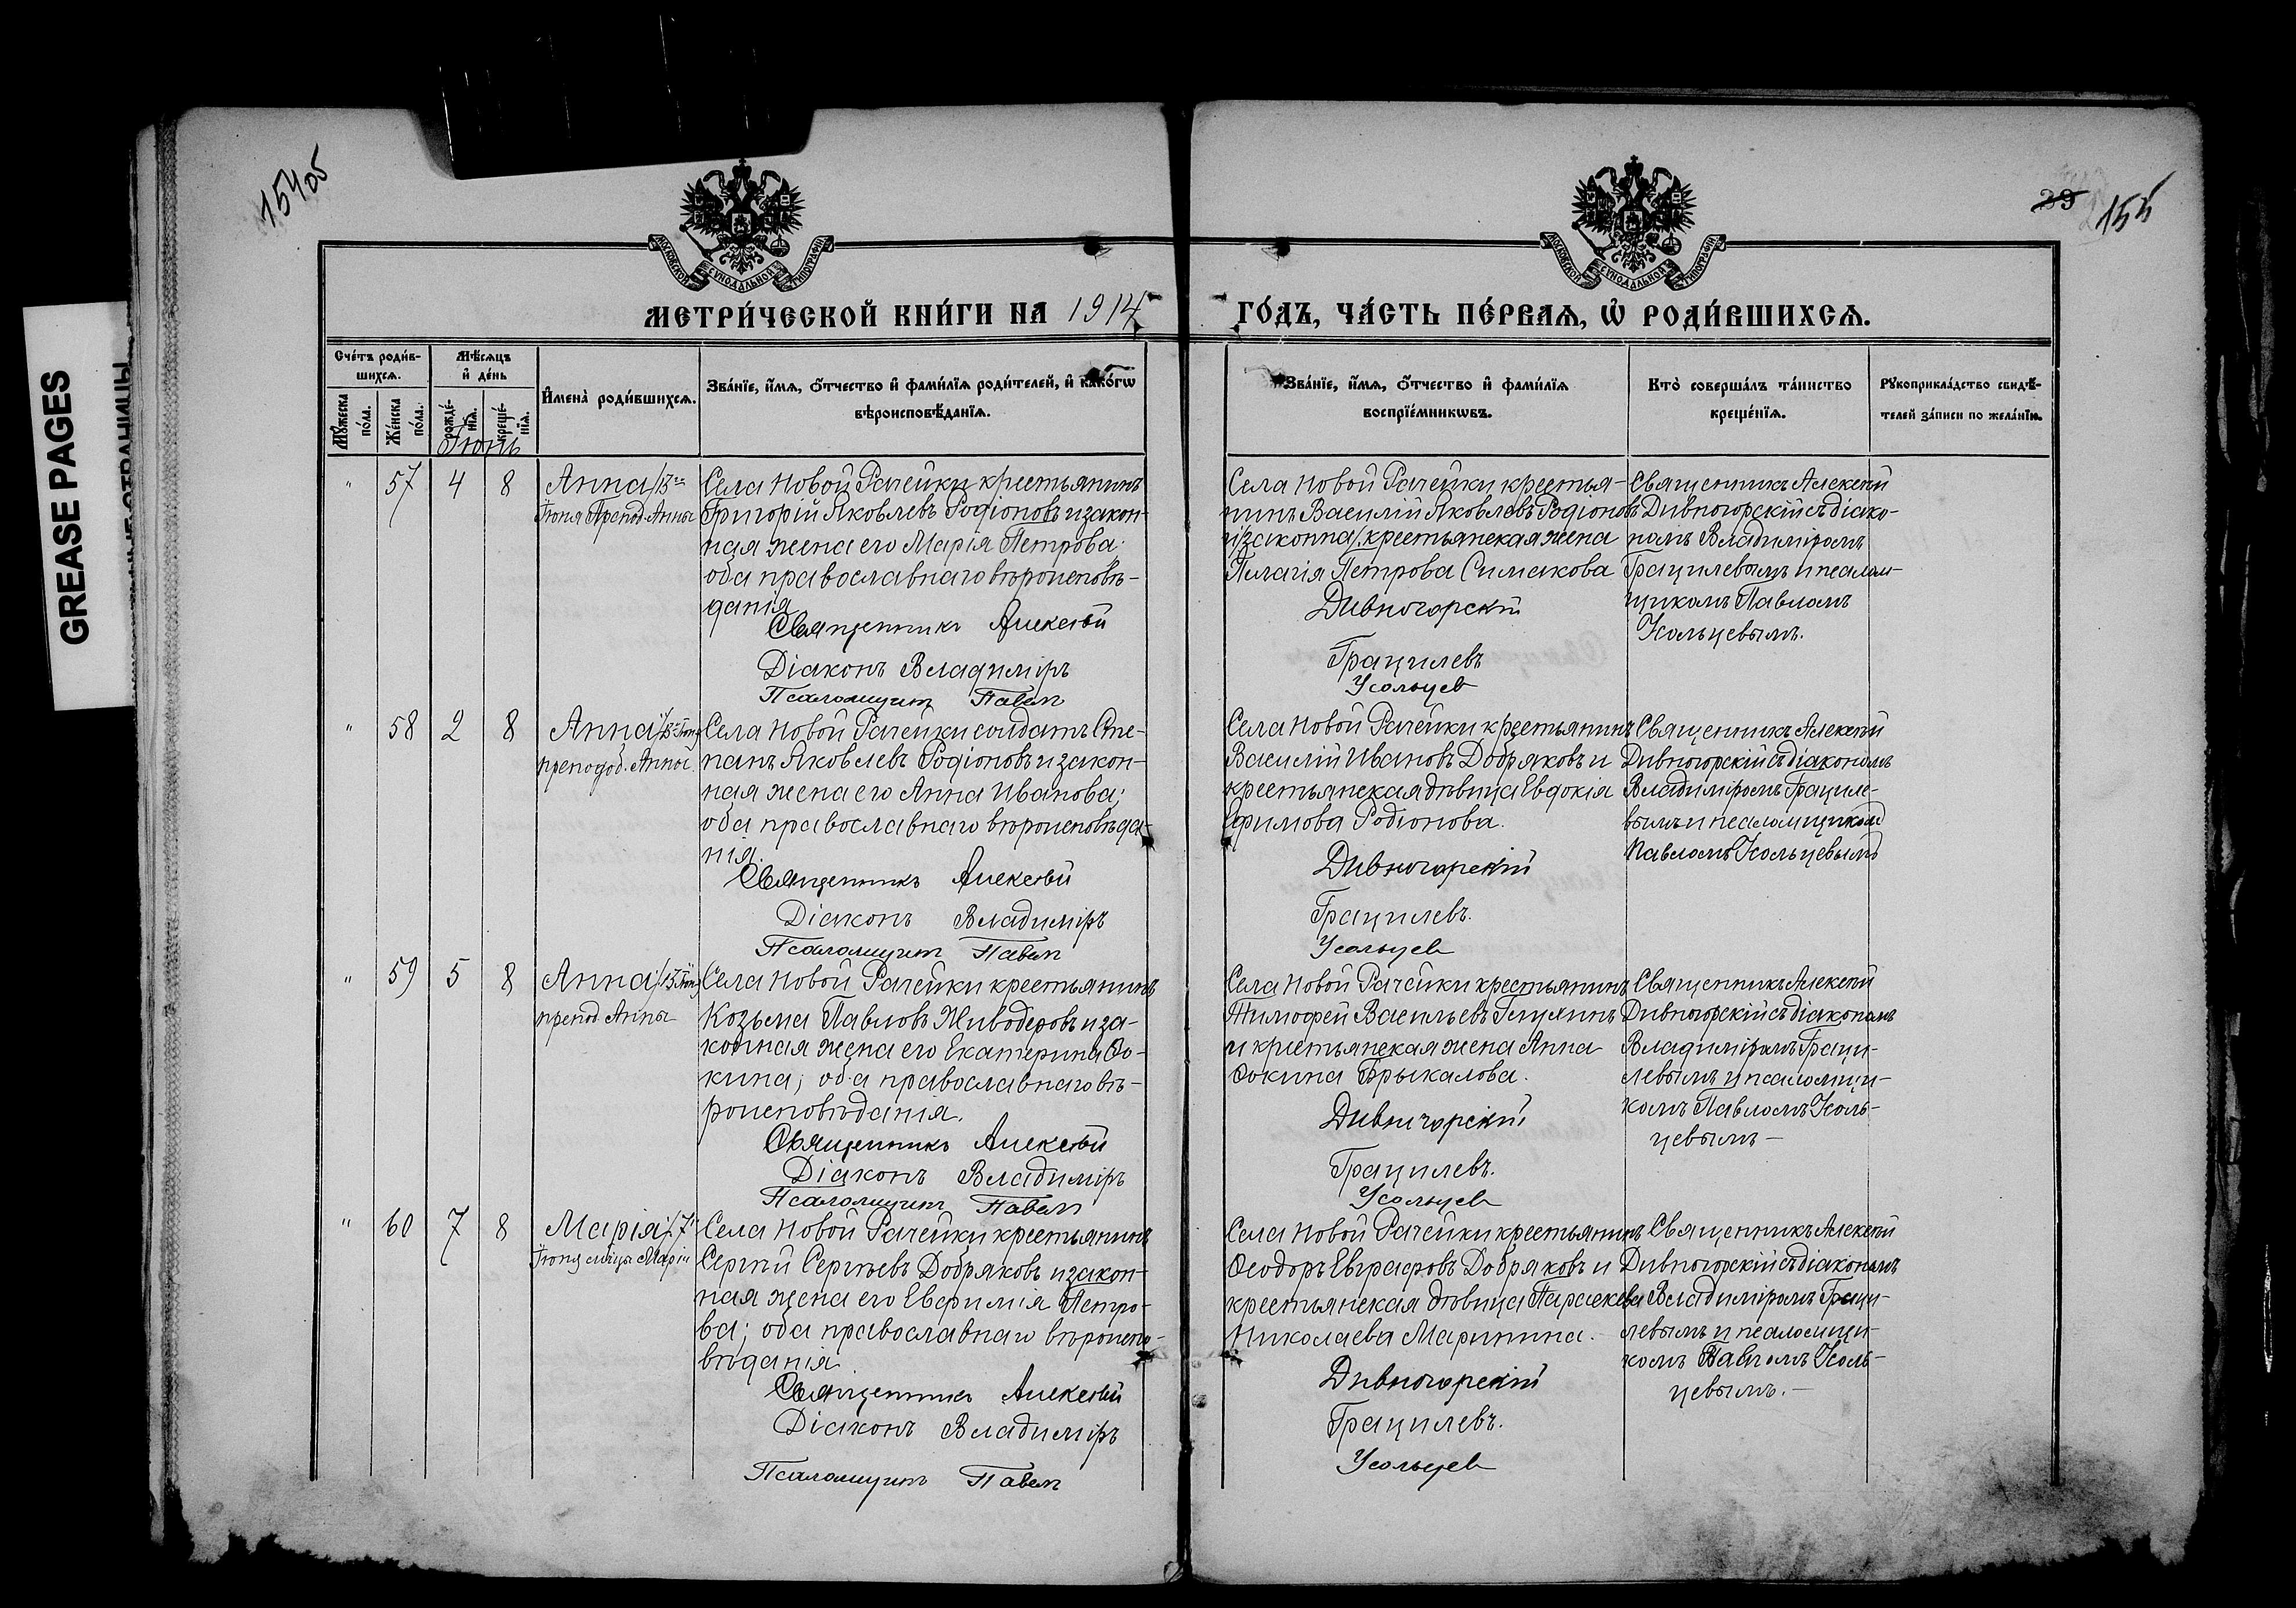 154об
39
155
GREASE PAGES
МОСКОВСКОЙ СѴНОДАЛЬНОЙ ТИПОГРАФІИ
МОСКОВСКОЙ СѴНОДАЛЬНОЙ ТИПОГРАФІИ
МЕТРИ́ЧЕСКОЙ КНИ́ГИ НА 1914
ГО́ДЪ, ЧА́СТЬ ПЕ́РВАѦ, Ѡ҆ РОДИ́ВШИХСѦ.
Сче́тъ роди́в-
шихсѧ.
Мѣ́сѧцъ
и҆ де́нь
Мꙋ́жеска
по́ла.
Же́нска
по́ла.
рожде́-
нїѧ.
креще́-
нїѧ.
Іюнь
И҆мена̀ роди́вшихсѧ.
Зва́нїе, и҆́мѧ, ѻ҆́тчество и҆ фами́лїѧ роди́телей, и҆ како́гѡ
вѣроисповѣ́данїѧ.
Зва́нїе, и҆́мѧ, ѻ҆́тчество и҆ фами́лїѧ
воспрїе́мникѡвъ.
Кто̀ соверша́лъ та́инство
креще́нїѧ.
Рꙋкоприкла́дство свидѣ́-
телей за́писи по жела́нїю.
" 57 4 8
Анна /13го
Іюня Препод. Анны
Села Новой Рачейки крестьянинъ
Григорій Яковлевъ Родіоновъ и закон-
ная жена его Марія Петрова;
оба православнаго вѣроисповѣ-
данія
Священникъ Алексѣй
Діаконъ Владиміръ
Псаломщик Павел
Села Новой Рачейки крестья-
нинъ Василій Яковлевъ Родіоновъ
и /законна/ крестьянская жена
Пелагія Петрова Симакова
Дивногорскій
Грацилевъ
Усольцев
Священникъ Алексѣй
Дивногорскій съ діако-
номъ Владиміромъ
Грацилевымъ и псалом-
щикомъ Павломъ
Усольцевымъ.
" 58 2 8
Анна /13го Іюня
преподоб. Анны
Села Новой Рачейки солдатъ Сте-
панъ Яковлевъ Родіоновъ и закон-
ная жена его Анна Иванова;
оба православнаго вѣроисповѣда-
нія.
Священникъ Алексѣй
Діаконъ Владиміръ
Псаломщик Павел
Села Новой Рачейки крестьянинъ
Василій Ивановъ Добряковъ и
крестьянская дѣвица Евдокія
Ефимова Родіонова.
Дивногорскій
Грацилевъ.
Усольцев
Священникъ Алексѣй
Дивногорскій съ діакономъ
Владиміромъ Грациле-
вымъ и псаломщикомъ
Павломъ Усольцевымъ
" 59 5 8
Анна /13 Іюня
препод. Анны
Села Новой Рачейки крестьянинъ
Козьма Павловъ Живодеровъ и за-
конная жена его Екатерина Ѳо-
кина; оба православнаго вѣ-
роисповѣданія.
Священникъ Алексѣй
Діаконъ Владиміръ
Псаломщик Павел
Села Новой Рачейки крестьянинъ
Тимофей Васильевъ
и крестьянская жена Анна
Ѳокина Брыкалова.
Дивногорскій
Грацилевъ.
Усольцев
Священникъ Алексѣй
Дивногорскій съ діакономъ
Владиміромъ Граци-
левымъ и псаломщи-
комъ Павломъ Усоль-
цевымъ —
" 60 7 8
Марія /7
Іюня мцы Маріи
Села Новой Рачейки крестьянинъ
Сергѣй Сергѣевъ Добряковъ и закон-
ная жена его Евфимія Петро-
ва; оба православнаго вѣроиспо-
вѣданія
Священникъ Алексѣй
Діаконъ Владиміръ
Псаломщикъ Павел
Села Новой Рачейки крестьянинъ
Ѳеодоръ Евграфовъ Добряковъ и
крестьянская дѣвица Параскева
Николаева Маринина.
Дивногорскій
Грацилевъ.
Усольцев
Священникъ Алексѣй
Дивногорскій съ діакономъ
Владиміромъ Граци-
левымъ и псаломщи-
комъ Павломъ Усоль-
цевымъ. —